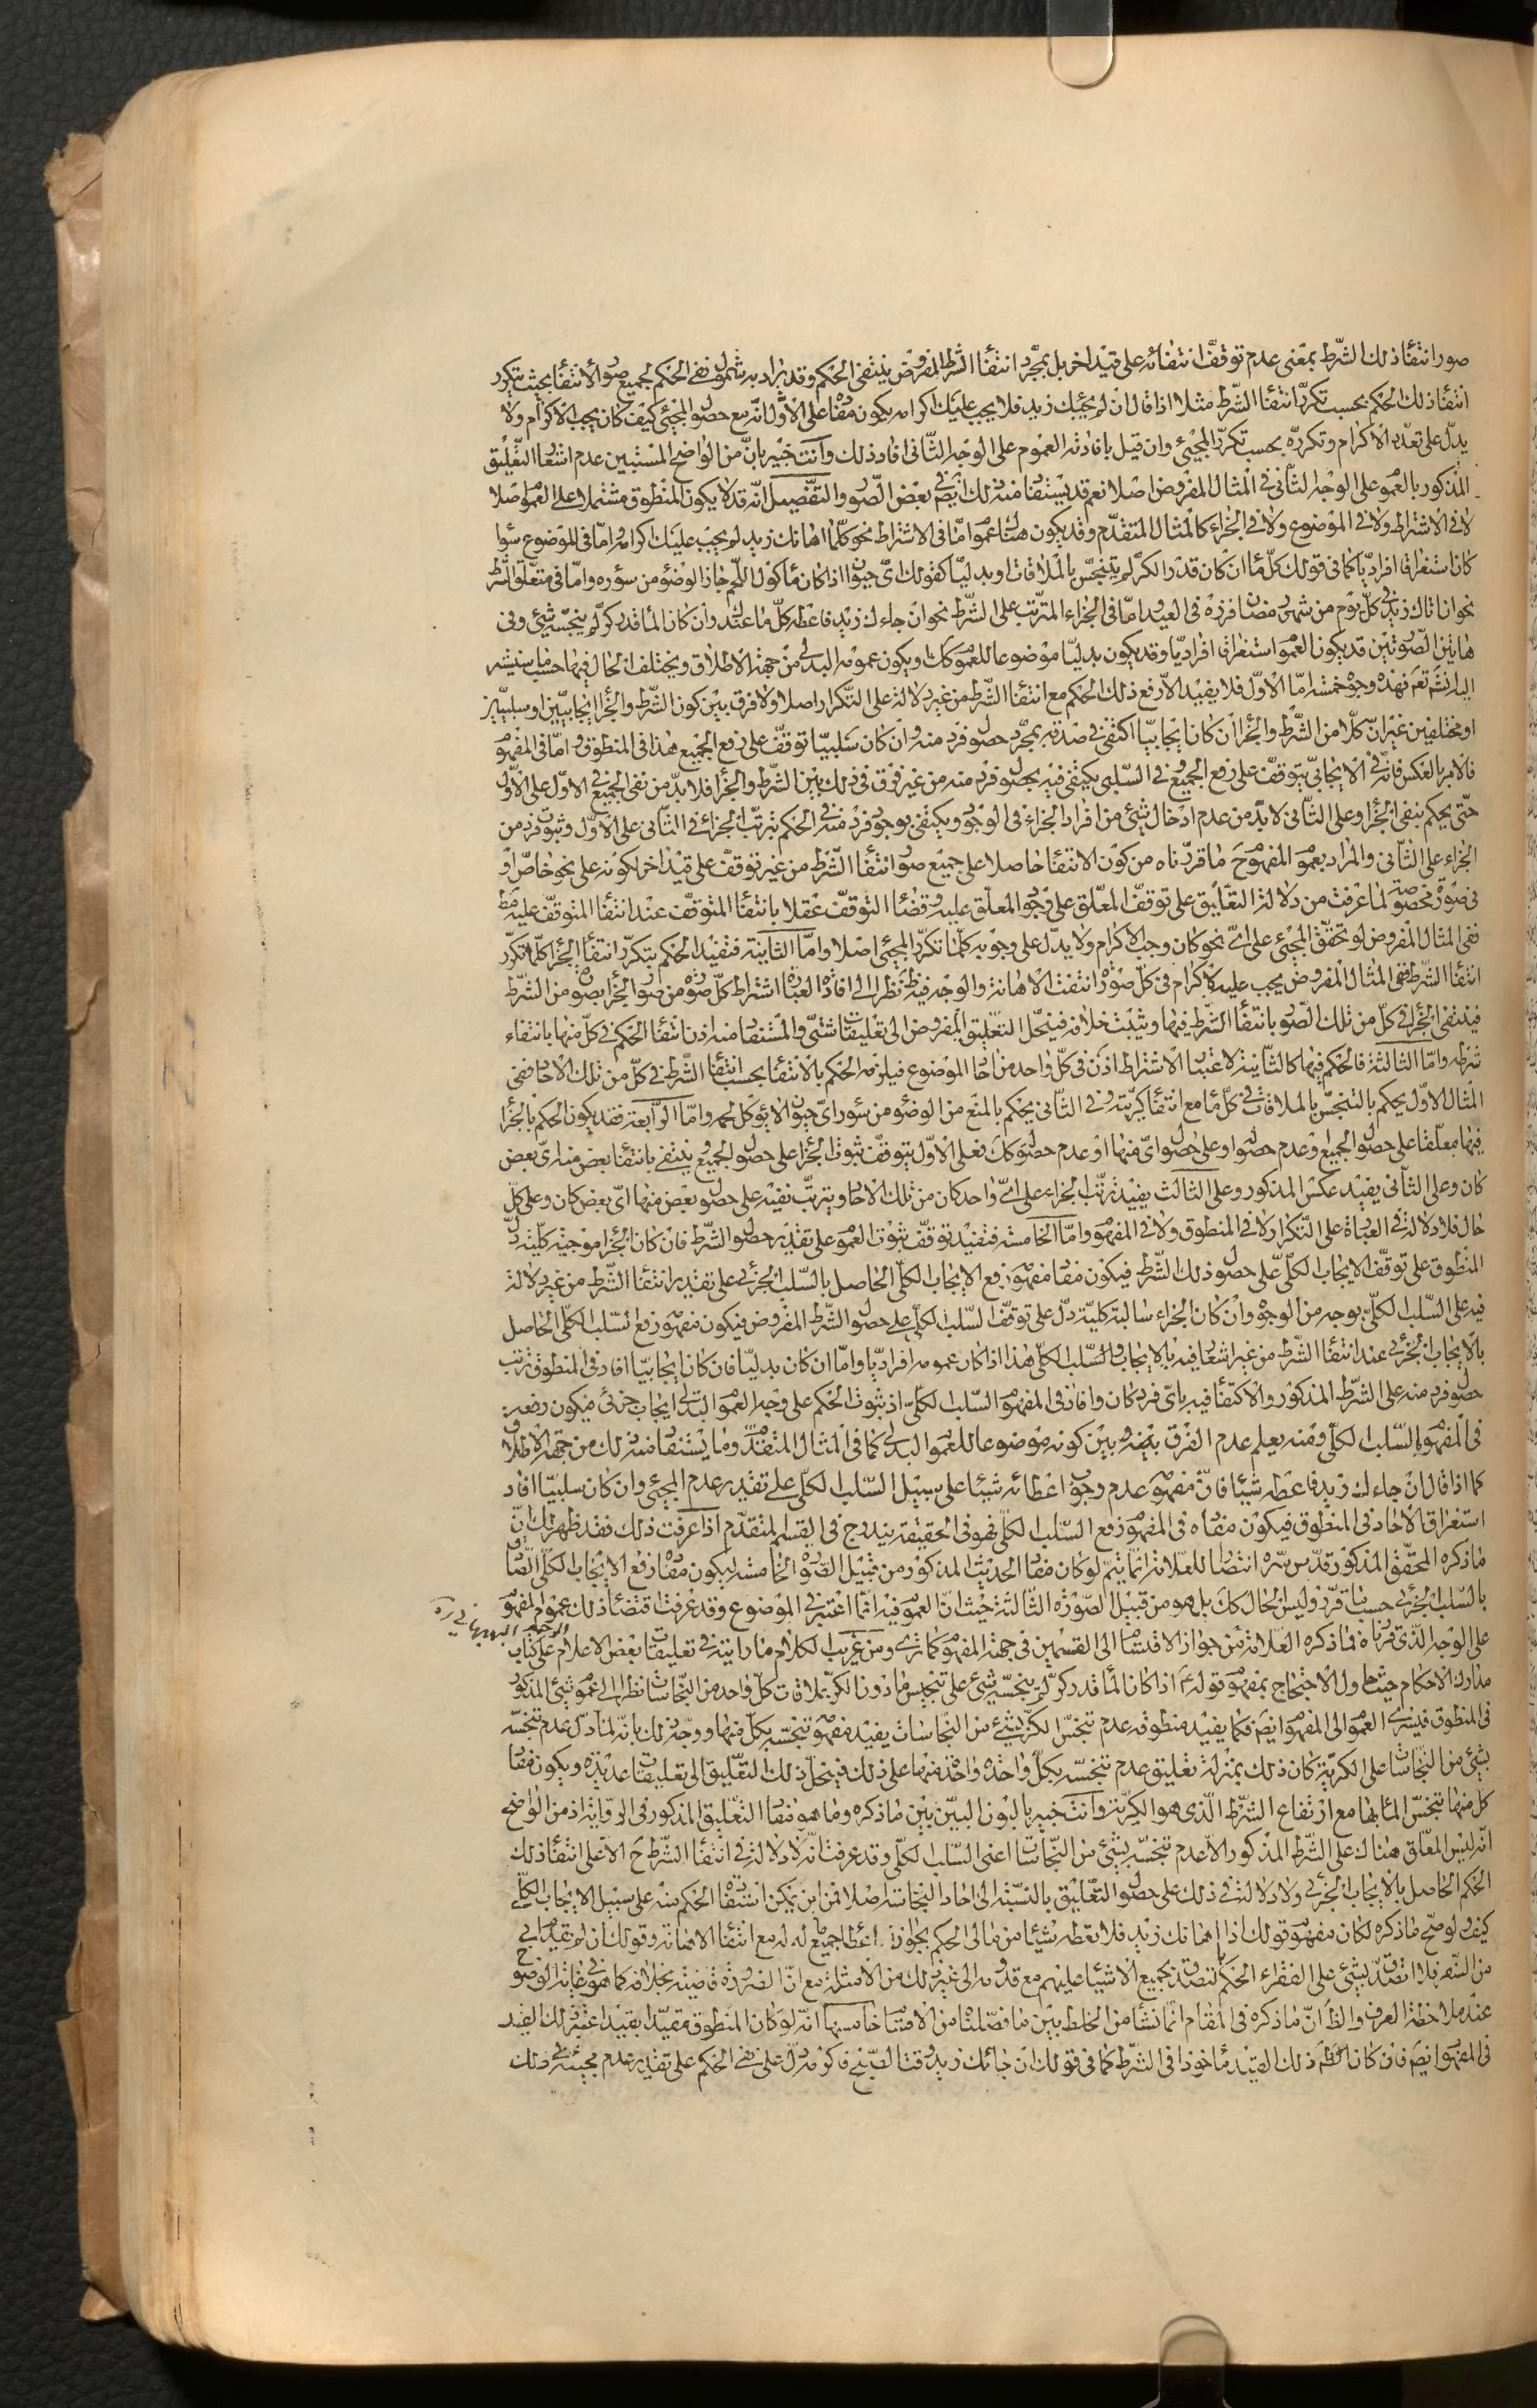 صور انتفاء ذلك الشرط بمعنى عدم توقف انتفائه على قيد اخر بل بمجرد انتفاء الشرط المفروض ينتفى الحكم وقد يراد به شمول نفى الحكم لجميع صور الانتفاء بحيث يتكرر
انتفاء ذلك الحكم بحسب تكرر انتفاء الشرط مثلا اذا قال ان لم يجئك زيد فلا يجب عليك اكرامه يكون مفاده على الاول انه مع حصول المجيئ كيف كان يجب الاكرام ولا
يدل على تعدد الاكرام وتكرره بحسب تكرر المجيئ وان قيل بافادته العموم على الوجه الثانى افاد ذلك وانت خبير بان من الواضح المستبين عدم اشعار التعليق
المذكور بالعموم على الوجه الثانى فى المثال المفروض اصلا نعم قد يستفاد منه ذلك ايضم فى بعض الصور والتفصيل انه قد لا يكون المنطوق مشتملا على العموم اصلا
لا فى الاشتراط ولا فى الموضوع ولا فى الجزاء كالمثال المتقدم وقد يكون هناك عموم اما فى الاشتراط نحو كلما اهانك زيد لم يجب عليك اكرامه واما فى الموضوع سواء
كان استغراقا افراديا كما فى قولك كل ماء ان كان قدر الكر لم يتنجس بالملاقات او بدليا كقولك اى حيوان اذا كان ماكول اللحم جاز الوضوء من سؤره واما فى متعلق الشرط
نحو ان اتاك زيد فى كل يوم من شهر رمضان فزره فى العيد واما فى الجزاء المترتب على الشرط نحو ان جاءك زيد فاعطه كل ما عندك وان كان الماء قدر كر لم ينجسه شيئ وفى
هاتين الصورتين قد يكون العموم استغراقا افراديا وقد يكون بدليا موضوعا للعموم كك ويكون عمومه البدلى من جهة الاطلاق ويختلف الحال فيها حسب ما سنشير
اليه انشاء الله تعم فهذه وجوه خمسة اما الاول فلا يفيد الا رفع ذلك الحكم مع انتفاء الشرط من غير دلالة على التكرار اصلا ولا فرق بين كون الشرط والجزاء ايجابيين او سلبيين
او مختلفين غير ان كلا من الشرط والجزاء ان كان ايجابيا اكتفى فى صدقه بمجرد حصول فرد منه وان كان سلبيا توقف على رفع الجميع هذا فى المنطوق واما فى المفهوم
فالامر بالعكس فانه فى الايجابى يتوقف على رفع الجميع وفى السلبى يكتفى فيه بحصول فرد منه من غير فرق فى ذلك بين الشرط والجزاء فلا بد من نفى الجميع فى الاول على الاول
حتى يحكم بنفى الجزاء وعلى الثانى لا بد من عدم ادخال شيئ من افراد الجزاء فى الوجود ويكتفى بوجود فرد منه فى الحكم بترتب الجزاء فى الثانى على الاول وثبوت فرد من
الجزاء على الثانى والمراد بعموم المفهوم ح ما قررناه من كون الانتفاء حاصلا على جميع صور انتفاء الشرط من غير توقف على قيد اخر لكونه على نحو خاص او
فى صورة مخصوصة لما عرفت من دلالة التعليق على توقف المعلق على وجود المعلق عليه وقضاء التوقف عقلا بانتفاء المتوقف عند انتفاء المتوقف عليه مط
ففى المثال المفروض لو تحقق المجيئ على اى نحو كان وجب الاكرام ولا يدل على وجوبه كلما تكرر المجيئ اصلا واما الثانية فتفيد الحكم بتكرر انتفاء الجزاء كلما تكرر
انتفاء الشرط ففى المثال المفروض يجب عليه الاكرام فى كل صورة انتفت الاهانة والوجه فيه ظ نظرا الى افادة العبارة اشتراط كل صورة من صور الجزاء بصورة من الشرط
فينتفى الجزاء فى كل من تلك الصور بانتفاء الشرط فيها ويثبت خلافه فينحل التعليق المفروض الى تعليقات شتى والمستفاد منه اذن انتفاء الحكم فى كل منها بانتفاء
شرطه واما الثالثة فالحكم فيها كالثانية لاعتبار الاشتراط اذن فى كل واحد من احاد الموضوع فيلزمه الحكم بالانتفاء بحسب انتفاء الشرط فى كل من تلك الاحاد ففى
المثال الاول يحكم بالتنجس بالملاقات فى كل ماء مع انتفاء كريته وفى الثانى يحكم بالمنع من الوضوء من سؤر اى حيوان لا يؤكل لحمه واما الرابعة فقد يكون الحكم بالجزاء
فيها معلقا على حصول الجميع او عدم حصوله او على حصول اى منها او عدم حصوله كك فعلى الاول يتوقف ثبوت الجزاء على حصول الجميع وينتفى بانتفاء بعض منه اى بعض
كان وعلى الثانى يفيد عكس المذكور وعلى الثالث يفيد ترتب الجزاء على اى واحد كان من تلك الاحاد ويترتب نفيه على حصول بعض منها اى بعض كان وعلى كل
حال فلا دلالة فى العبارة على التكرار لا فى المنطوق ولا فى المفهوم واما الخامسة فتفيد توقف ثبوت العموم على تقدير حصول الشرط فان كان الجزاء موجبة كلية دل
المنطوق على توقف الايجاب الكلى على حصول ذلك الشرط فيكون مفاد مفهومه رفع الايجاب الكلى الحاصل بالسلب الجزئى على تقدير انتفاء الشرط من غير دلالة
فيه على السلب الكلى بوجه من الوجوه وان كان الجزاء سالبة كلية دل على توقف السلب الكلى على حصول الشرط المفروض فيكون مفهومه رفع السلب الكلى الحاصل
بالايجاب الجزئى عند انتفاء الشرط من غير اشعار فيه بالايجاب والسلب الكلى هذا اذا كان عمومه افراديا واما ان كان بدليا فان كان ايجابيا افاد فى المنطوق ترتب
حصول فرد منه على الشرط المذكور والاكتفاء فيه باى فرد كان وافاد فى المفهوم السلب الكلى اذ ثبوت الحكم على وجه العموم البدلى ايجاب جزئى فيكون رفعه
فى المفهوم بالسلب الكلى ومنه يعلم عدم الفرق بينه وبين كونه موضوعا للعموم البدلى كما فى المثال المتقدم وما يستفاد منه ذلك من جهة الاطلاق
كما اذا قال ان جاءك زيد فاعطه شيئا فان مفهومه عدم وجوب اعطائه شيئا على سبيل السلب الكلى على تقدير عدم المجيئ وان كان سلبيا افاد
استغراق الاحاد فى المنطوق فيكون مفاده فى المفهوم رفع السلب الكلى فهو فى الحقيقة يندرج فى القسم المتقدم اذا عرفت ذلك فقد ظهر لك ان
ما ذكره المحقق المذكور قدس سره انتصارا للعلامة انما يتم لو كان مفاد الحديث المذكور من قبيل الصورة الخامسة ليكون مفاده رفع الايجاب الكلى الصادق
بالسلب الجزئى حسب ما قرر وليس الحال كك بل هو من قبيل الصورة الثالثة حيث ان العموم فيه انما اعتبر فى الموضوع وقد عرفت اقتضاء ذلك عموم المفهوم
على الوجه الذى قررناه فما ذكره العلامة من جواز الانقسام الى القسمين فى جهة المفهوم كما ترى ومن غريب الكلام ما رايته فى تعليقات بعض الاعلام على كتاب
مدارك الاحكام حيث حاول الاحتجاج بمفهوم قوله ع اذا كان الماء قدر كر لم ينجسه شيئ على تنجيس ما دون الكر بملاقات كل واحد من النجاسات نظرا الى عموم شيئ المذكور
فى المنطوق فيسرى العموم الى المفهوم ايضم فكما يفيد منطوقه عدم تنجس الكر بشيئ من النجاسات يفيد مفهومه تنجسه بكل منها ووجه ذلك بانه لما دل عدم تنجسه
بشيئ من النجاسات على الكرية كان ذلك بمنزلة تعليق عدم تنجسه بكل واحدة واحدة منها على ذلك فينحل ذلك التعليق الى تعليقات عديدة ويكون مفاد
كل منها تنجس الماء بها مع ارتفاع الشرط الذى هو الكرية وانت خبير بالبون البين بين ما ذكره وما هو مفاد التعليق المذكور فى الرواية اذ من الواضح
انه ليس المعلق هناك على الشرط المذكور الا عدم تنجسه بشيئ من النجاسات اعنى السلب الكلى وقد عرفت انه لا دلالة فى انتفاء الشرط ح الا على انتفاء ذلك
الحكم الحاصل بالايجاب الجزئى ولا دلالة فى ذلك على حصول التعليق بالنسبة الى احاد النجاسة اصلا فمن اين يمكن استفادة الحكم منه على سبيل الايجاب الكلى
كيف ولو صح ما ذكره لكان مفهوم قولك اذا اهانك زيد فلا تعطه شيئا من مالى الحكم بجواز اعطاء جميع ماله له مع انتفاء الاهانة وقولك ان لم تقدم ابى
من السفر فلا اتصدق بشيئ على الفقراء الحكم بالتصدق بجميع الاشياء عليهم مع قدومه الى غير ذلك من الامثلة مع ان الضرورة قاضية بخلافه كما هو فى غاية الوضوح
عند ملاحظة العرف والظ ان ما ذكره فى المقام انما نشأ من الخلط بين ما فصلناه من الاقسام خامسها انه لو كان المنطوق مقيدا بقيد اعتبر ذلك القيد
فى المفهوم ايضم فان كان ذلك القيد ماخوذا فى الشرط كما فى قولك ان جائك زيد وقت الصبح فاكرمه دل على نفى الحكم على تقدير عدم مجيئه فى ذلك